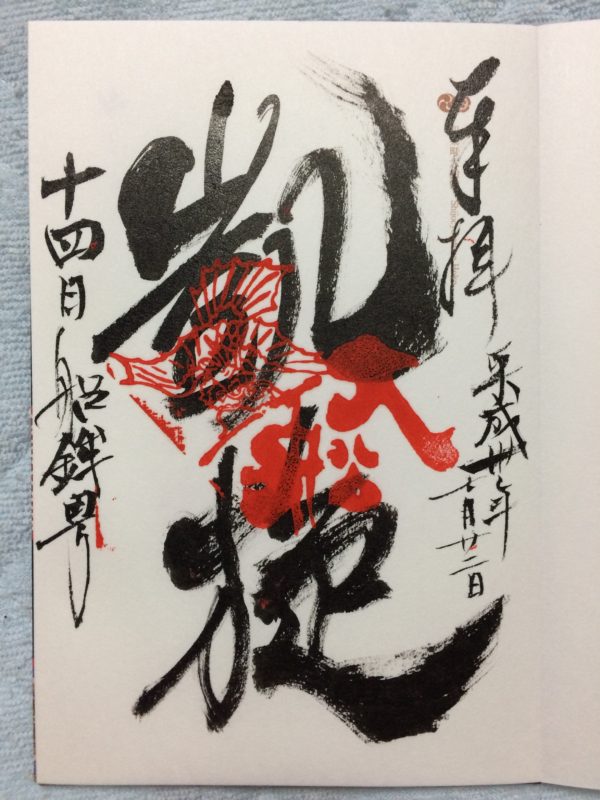 奉拝
平成卅年
七月廿二日
凱旋
大船
十四日船鉾町